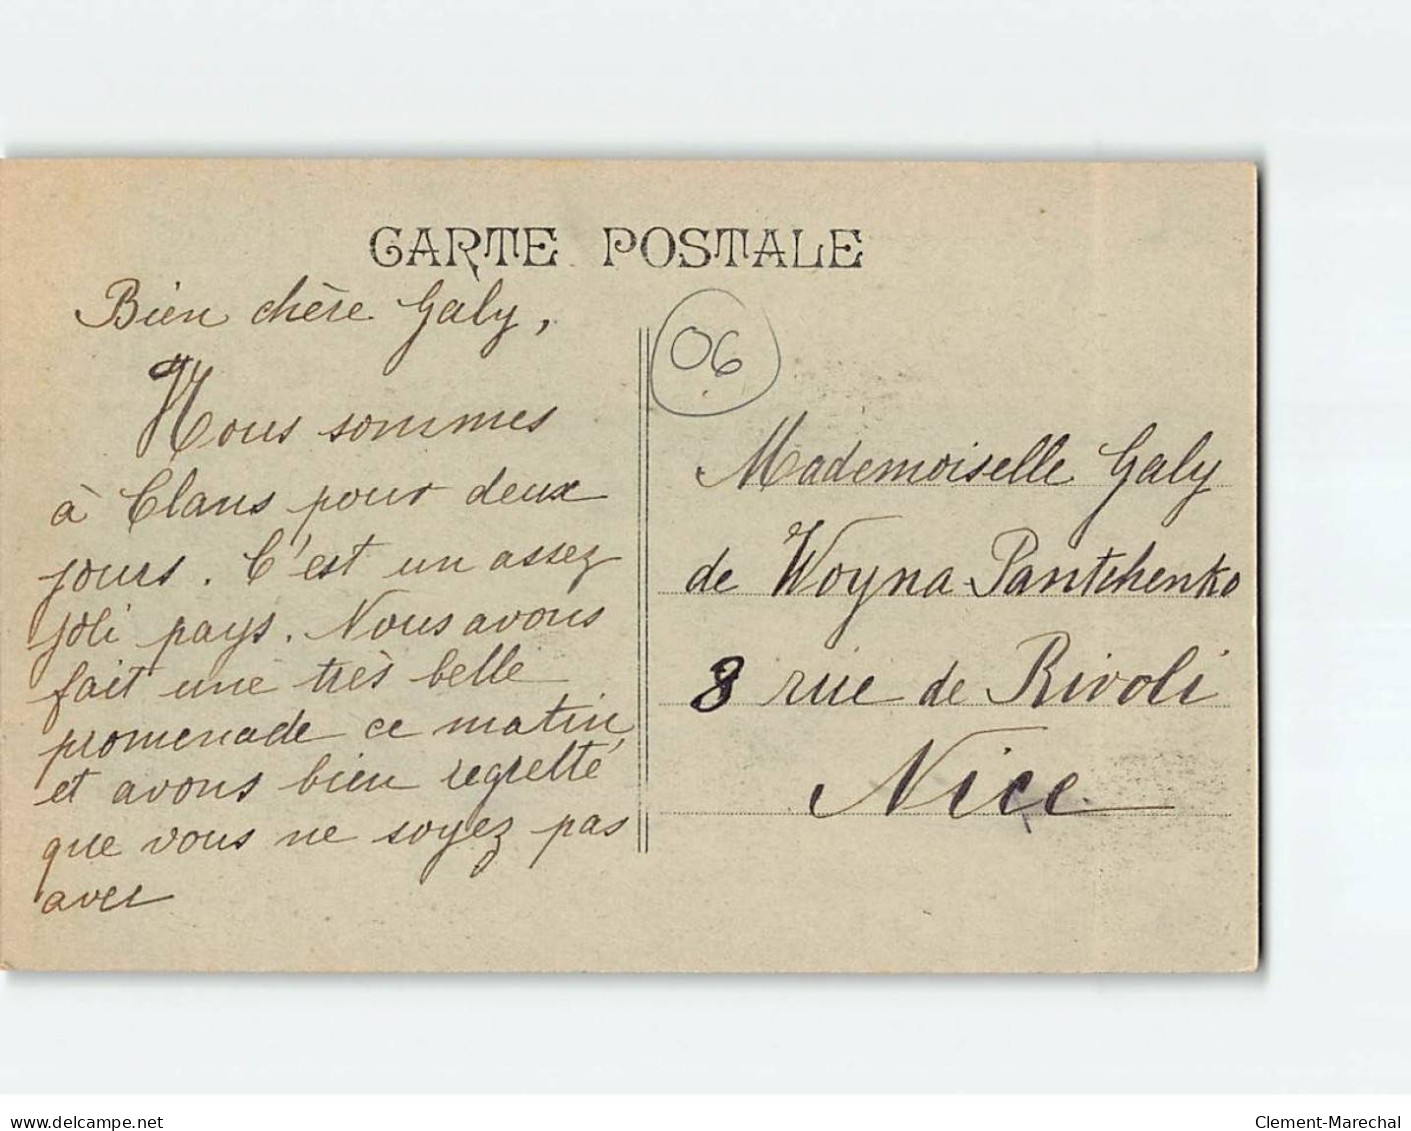 CARTE POSTALE
Bien chère Galy,
Nous sommes
à Clans pour deux
jours. C'est un assez
joli pays. Nous avons
fait une très belle
promenade ce matin
et avons bien regretté
que vous ne soyez pas
avec
06
Mademoiselle Galy
de Woyna-Pantchenko
8 rue de Rivoli
Nice
www.delcampe.net
Clement-Marechal